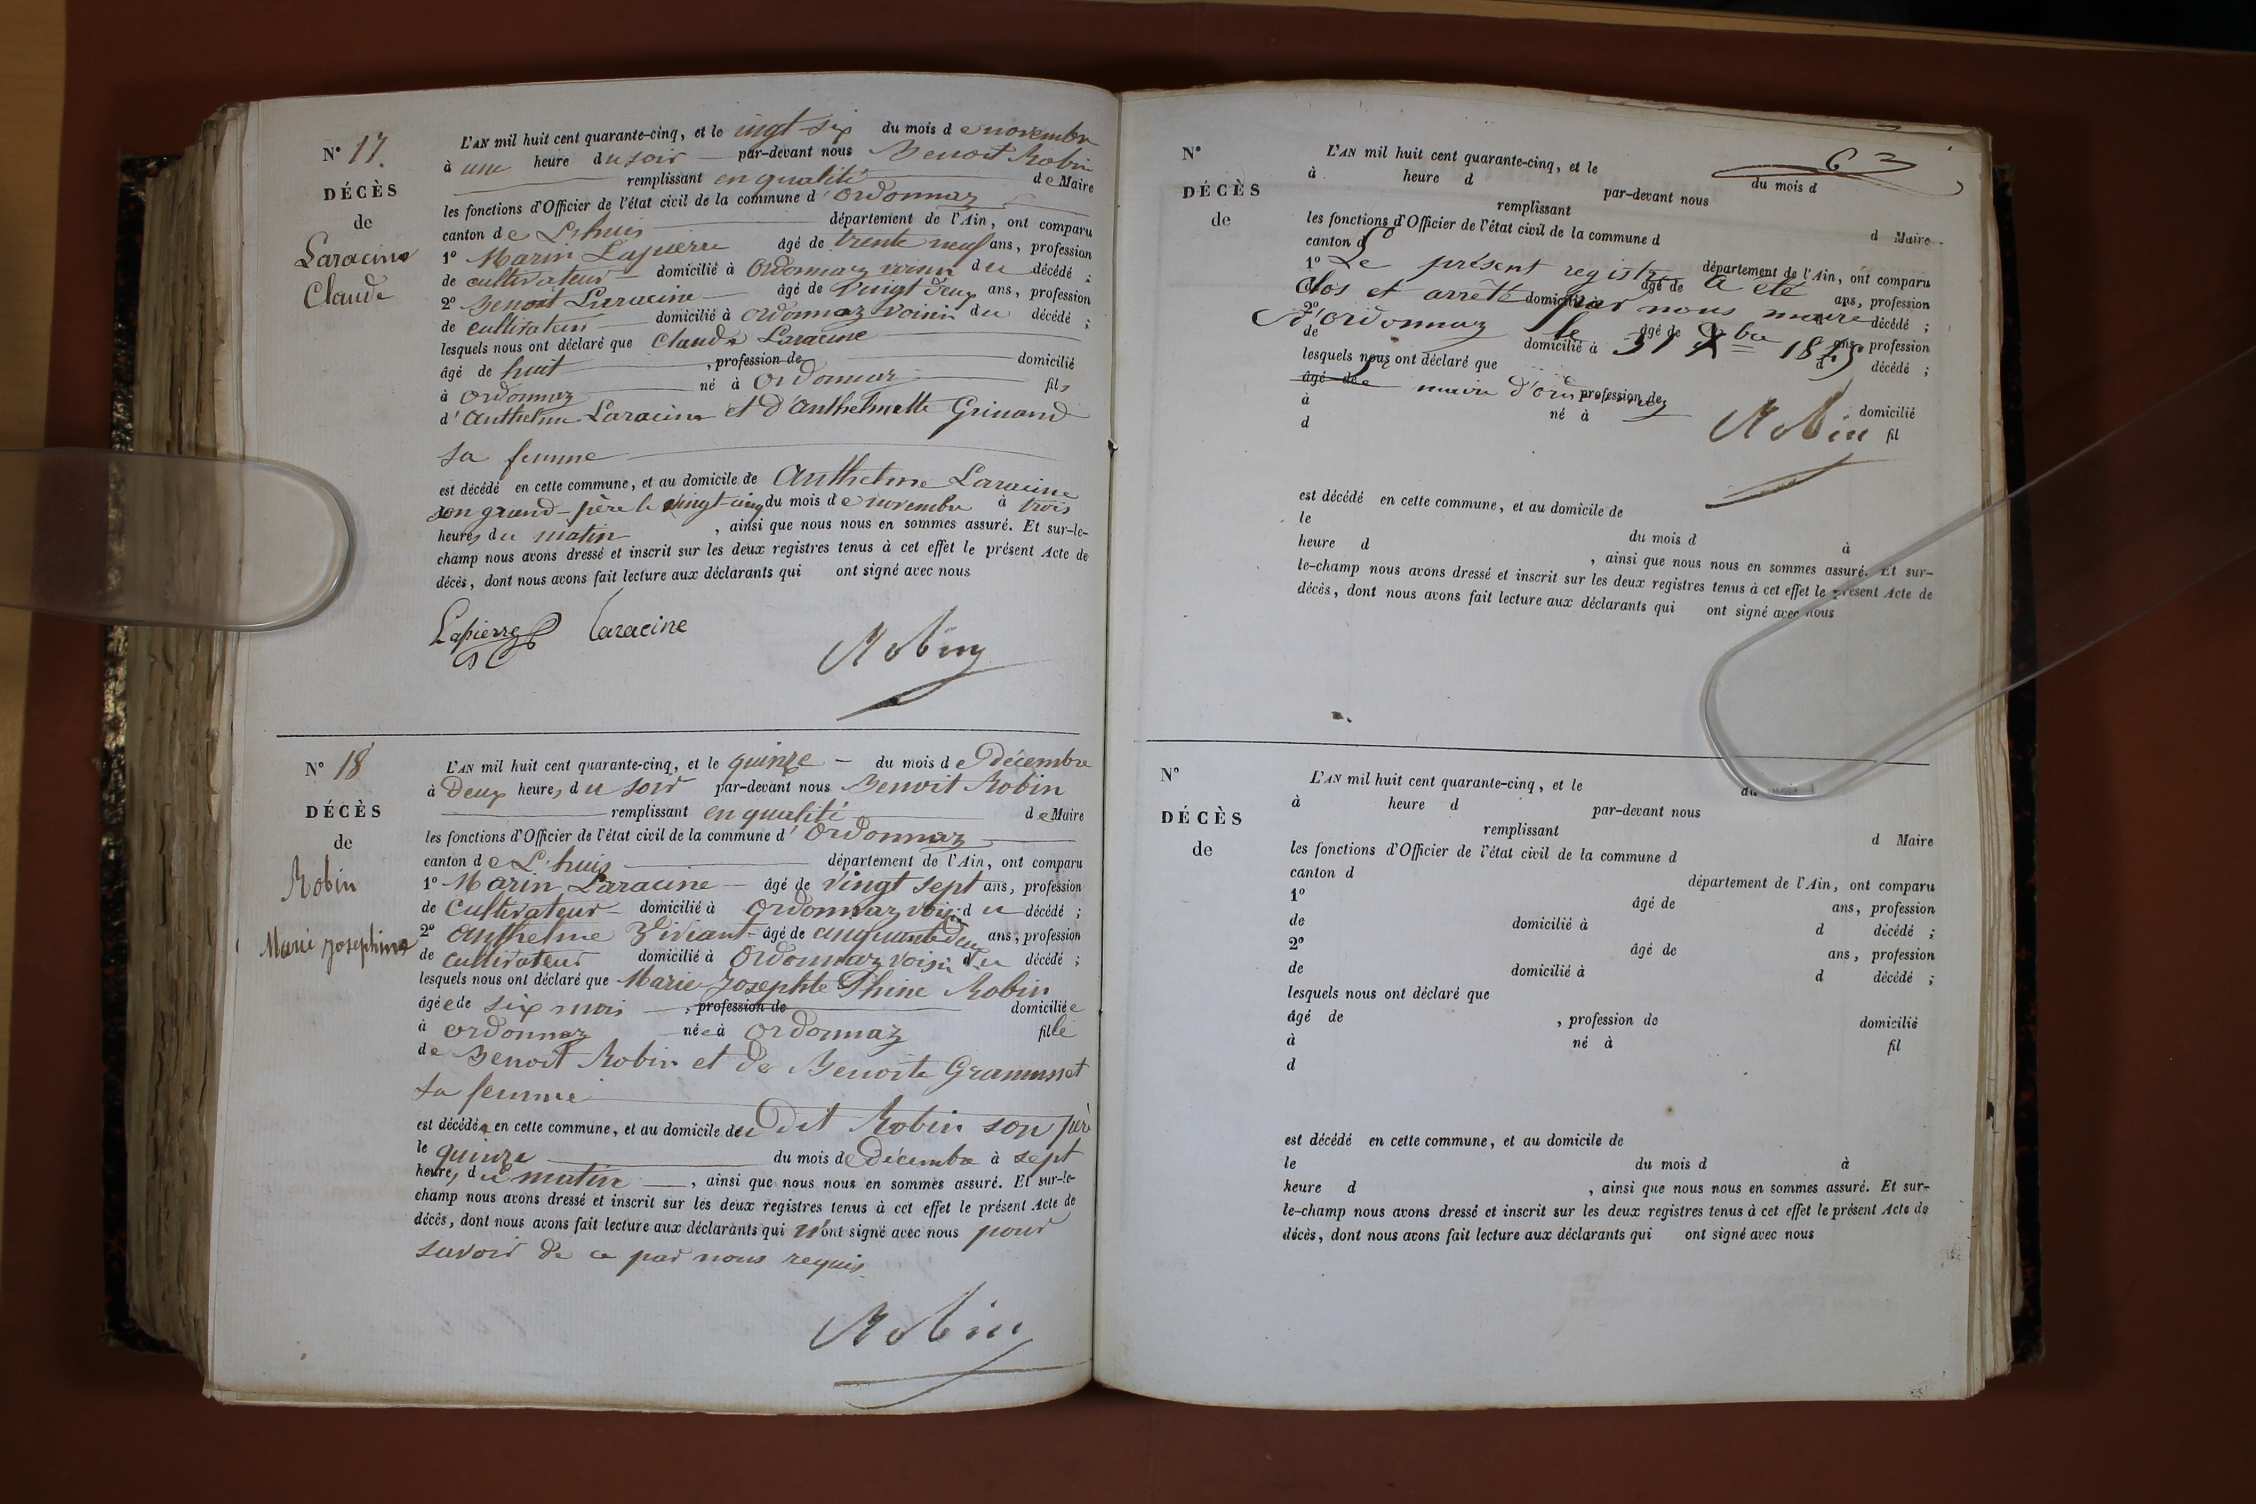 N° 17.
DÉCÈS
de
Laracine
Claude
L'AN mil huit cent quarante-cinq, et le vingt-six du mois de novembre
à une heure du soir par-devant nous Benoit Robin
remplissant en qualité de Maire
les fonctions d'Officier de l'état civil de la commune d'Ordonnaz
canton de L'huis département de l'Ain, ont comparu
1° Marin Lapierre âgé de trente neuf ans, profession
de cultivateur domicilié à Ordonnaz voisin du décédé ;
2° Benoit Laracine âgé de vingt deux ans, profession
de cultivateur domicilié à Ordonnaz voisin du décédé ;
lesquels nous ont déclaré que Claude Laracine
âgé de huit , profession de domicilié
à Ordonnaz né à Ordonnaz fils
d'Anthelme Laracine et d'Anthelmette Grinand
sa femme
est décédé en cette commune, et au domicile de Anthelme Laracine
son grand-père le vingt-cinq du mois de novembre à trois
heures du matin , ainsi que nous nous en sommes assuré. Et sur-le-
champ nous avons dressé et inscrit sur les deux registres tenus à cet effet le présent Acte de
décès, dont nous avons fait lecture aux déclarants qui ont signé avec nous
Lapierre Laracine
Robin
N° 18
DÉCÈS
de
Robin
Marie Josephine
L'AN mil huit cent quarante-cinq, et le quinze du mois de Décembre
à Deux heures du soir par-devant nous Benoit Robin
remplissant en qualité de Maire
les fonctions d'Officier de l'état civil de la commune d'Ordonnaz
canton de L'huis département de l'Ain, ont comparu
1° Marin Laracine âgé de vingt sept ans, profession
de Cultivateur domicilié à Ordonnaz voisin du décédé ;
2° Anthelme Viviant âgé de cinquante deux ans, profession
de cultivateur domicilié à Ordonnaz voisin du décédé ;
lesquels nous ont déclaré que Marie Josephte Phine Robin
âgée de six mois , profession de domiciliée
à Ordonnaz née à Ordonnaz fille
de Benoit Robin et de Benoite Gramusset
sa femme
est décédée en cette commune, et au domicile du Dit Robin son père
le quinze du mois de Décembre à sept
heures du matin , ainsi que nous nous en sommes assuré. Et sur-le-
champ nous avons dressé et inscrit sur les deux registres tenus à cet effet le présent Acte de
décès, dont nous avons fait lecture aux déclarants qui n'ont signé avec nous pour
savoir de ce par nous requis
Robin
63
N°
DÉCÈS
de
L'AN mil huit cent quarante-cinq, et le du mois d
à heure d par-devant nous
remplissant d Maire
les fonctions d'Officier de l'état civil de la commune d
canton d département de l'Ain, ont comparu
1° âgé de ans, profession
Le présent registre a été
clos et arrêté par nous maire
d'Ordonnaz le 31 Xbre 1845
maire d'Ordonnaz
Robin
de domicilié à d décédé ;
2° âgé de ans, profession
de domicilié à d décédé ;
lesquels nous ont déclaré que
âgé de , profession de domicilié
à né à fil
d
est décédé en cette commune, et au domicile de
le du mois d à
heure d , ainsi que nous nous en sommes assuré. Et sur-
le-champ nous avons dressé et inscrit sur les deux registres tenus à cet effet le présent Acte de
décès, dont nous avons fait lecture aux déclarants qui ont signé avec nous
N°
DÉCÈS
de
L'AN mil huit cent quarante-cinq, et le du mois d
à heure d par-devant nous
remplissant d Maire
les fonctions d'Officier de l'état civil de la commune d
canton d département de l'Ain, ont comparu
1° âgé de ans, profession
de domicilié à d décédé ;
2° âgé de ans, profession
de domicilié à d décédé ;
lesquels nous ont déclaré que
âgé de , profession de domicilié
à né à fil
d
est décédé en cette commune, et au domicile de
le du mois d à
heure d , ainsi que nous nous en sommes assuré. Et sur-
le-champ nous avons dressé et inscrit sur les deux registres tenus à cet effet le présent Acte de
décès, dont nous avons fait lecture aux déclarants qui ont signé avec nous